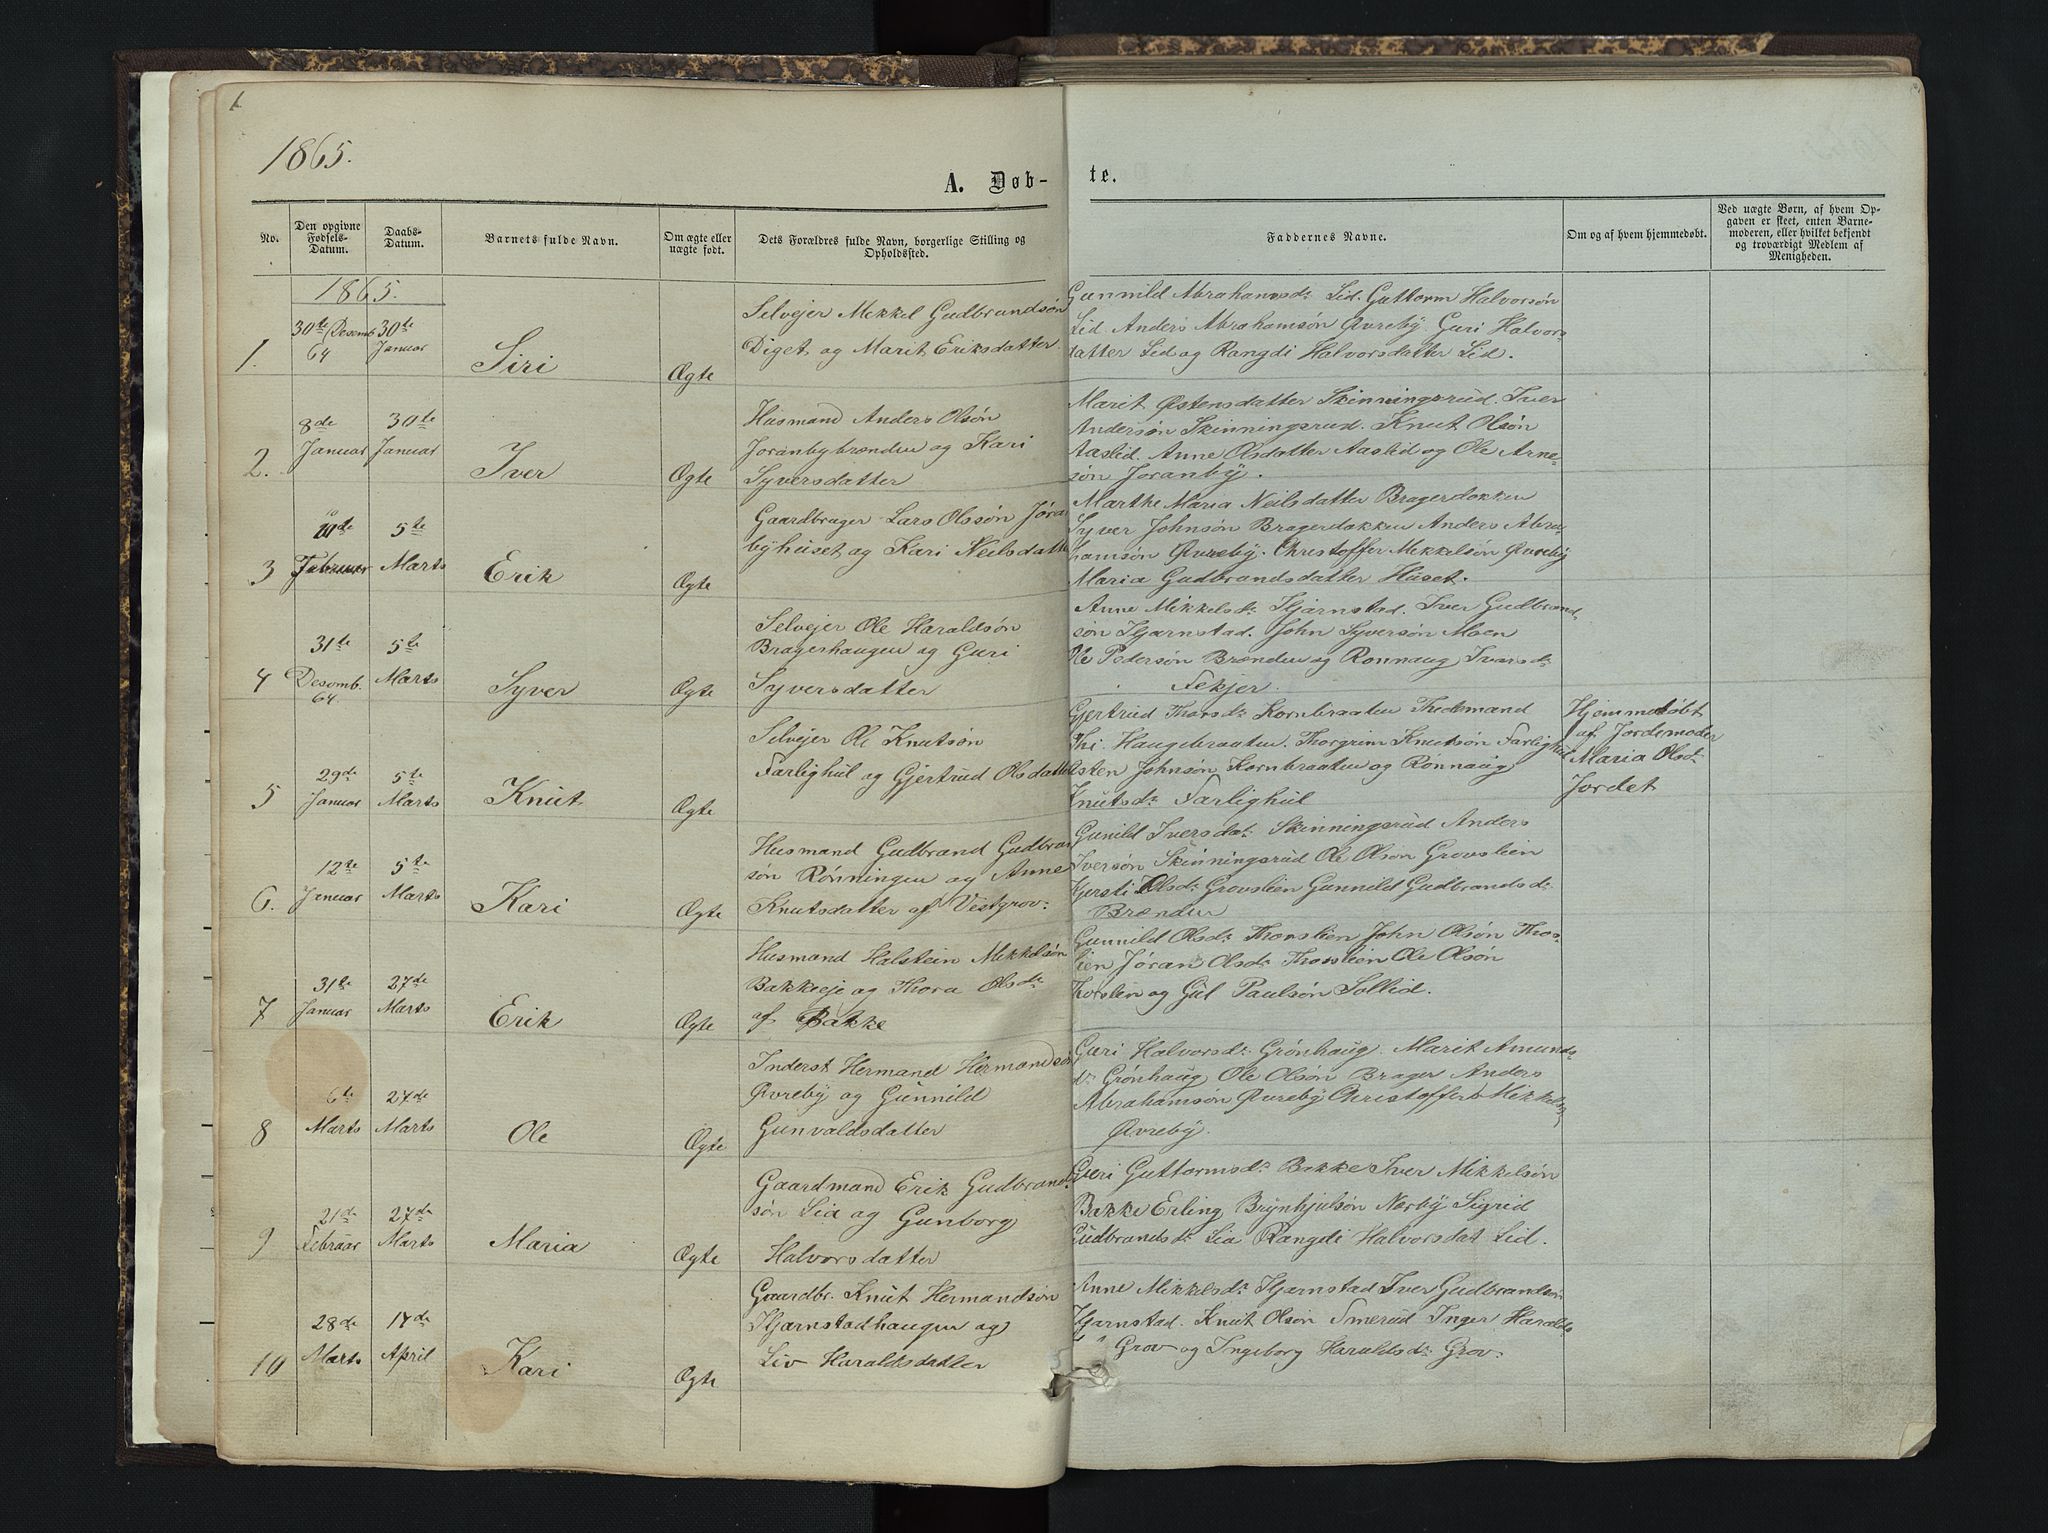 1865.
A. Døb-
te.
No.
Den opgivne
Fødsels-
Datum.
Daabs-
Datum.
Barnets fulde Navn.
Om ægte eller
uægte født.
Dets Forældres fulde Navn, borgerlige Stilling og
Opholdssted.
Faddernes Navne.
Om og af hvem hjemmedøbt.
Ved uægte Børn, af hvem Op-
gaven er skeet, enten Barne-
moderen, eller hvilket bekjendt
og troværdigt Medlem af
Menigheden.
1865.
1.
30te Desemb.
64
30te
Januar
Siri
Ægte
Selvejer Mekkel Gudbrandsøn
Diget og Marit Eriksdatter
Gunnild Abrahamsdr Lid. Guttorm Halvorsøn
Lid Anders Abrahamsøn Øvreby. Guri Halvors-
datter Lid og Rangdi Halvorsdatter Lid.
2.
8de
Januar
30te
Januar
Iver
Ægte
Husmand Anders Olsøn
Joranbybrænden og Kari
Syversdatter
Marit Østensdatter Skinningsrud. Iver
Andersøn Skinningsrud. Knut Olsøn
Aaslid. Anne Olsdatter Aaslid og Ole Arne-
søn Joranby.
3
Februar
5te
Marts
Erik
Ægte
Gaardbruger Lars Olssøn Jøra
byhuset og Kari Neilsdatte
Marthe Maria Neilsdatter Bragerdokken
Syver Johnsøn Bragerdokken Anders Abra-
hamsøn Øvreby. Christoffer Mekkelsøn Øvreby
Maria Gudbrandsdatter Huset.
4
31te
Desemb.
64.
5te
Marts
Syver
Ægte
Selvejer Ole Haraldsøn
Bragerhaugen og Guri
Syversdatter
Anne Mikkelsdr Hjarnstad. Iver Gudbrand-
søn Hjarnstad. John Syversøn Moen
Ole Pedersøn Brænden og Ronnaug Ivarsdr
Fekjer.
5
29de
Januar
5te
Marts
Knut
Ægte
Selvejer Ole Knutsøn
Farlighul og Gjertrud Olsdatte
Gjertrud Thorsdr Kornbraaten Thedemand
Haugebraaten. Thorgrim Knutsøn Farlighul
Østen Johnsøn Kornbraaten og Ronnaug
Knutsdr Farlighul
Hjemmedøbt
af Jordemoder
Maria Olsdr
Jordet
6.
12te
Januar
5te
Marts
Kari
Ægte
Husmand Gudbrand Gudbran
søn Rønningen og Anne
Knutsdatter af Vestgrov.
Gunild Iversdat. Skinningsrud Anders
Iversøn Skinningsrud Ole Olsøn Grovslien
Kjersti Olsdr Grovslien Gunnild Gudbrandsdr
Brænden
7
31te
Januar
27de
Marts
Erik
Ægte
Husmand Halstein Mekkelsøn
Bakkeeje og Thora Olsdr
af Bakke
Gunnild Olsdr Thorslien John Olsøn Thors-
lien Jøran Olsdr Thorslien Ole Olsøn
Thorslien og Gul Paulsøn Sollid.
8
6te
Marts
27de
Marts
Ole
Ægte
Inderst Hermand Hermandsøn
Øvreby og Gunnild
Gunvaldsdatter
Guri Halvorsdr Grønhaug. Marit Amunds-
dr Grønhaug Ole Olsøn Brager Anders
Abrahamsøn Øvreby Christoffer Mikkelsøn
Øvreby.
9
21de
Februar
27de
Marts
Maria
Ægte
Gaardmand Erik Gudbrand-
søn Lia og Gunborg
Halvorsdatter
Guri Guttormsdr Bakke Iver Mikkelsøn
Bakke Erling Brynhjulsøn Nørby Sigrid
Gudbrandsdr Lia Rangdi Halvorsdat Lid.
10
28de
Marts
17de
April
Kari
Ægte
Gaardbr. Knut Hermandsøn
Hjarnstadhaugen og
Liv Haraldsdatter
Anne Mikkelsdr Hjarnstad Iver Gudbrandsøn
Hjarnstad. Knut Olsøn Smerud Inger Haralds
" " Grov og Ingeborg Haraldsdr Grov.